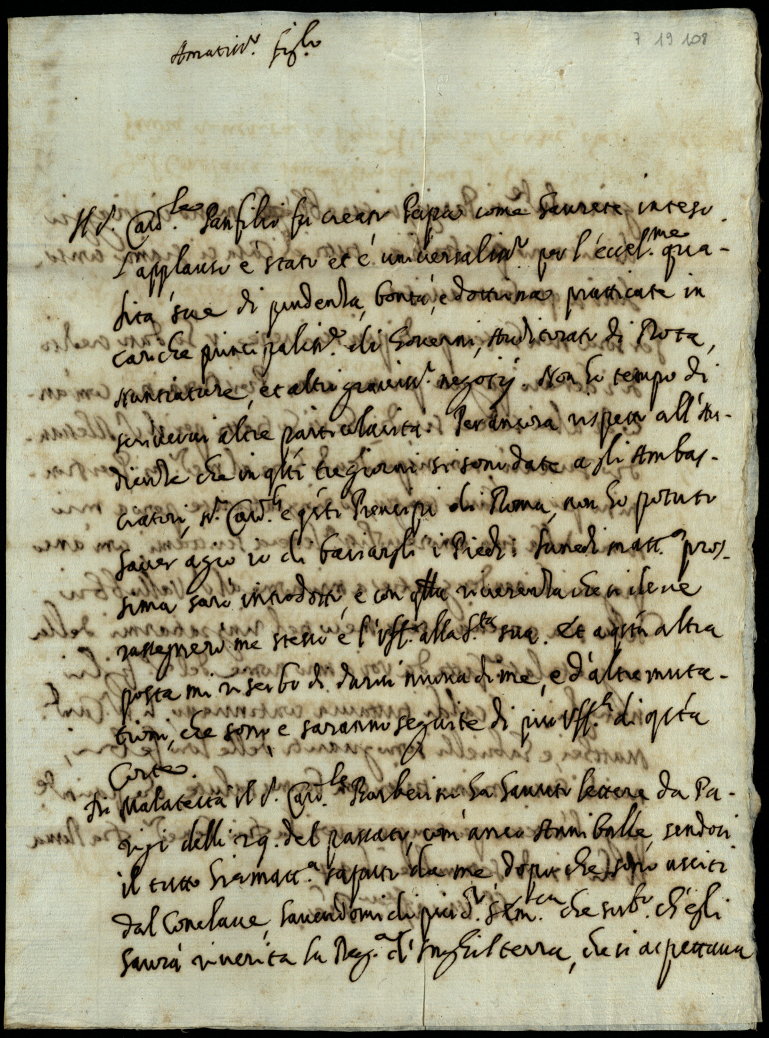 7 19 108
Amatiss.º figl.º
Il S.r Card.le Panfilio fu creato Papa come havrete inteso.
L'applauso è stato et è universaliss.º per l'eccel.me qua-
lità sue di prudenza, bontà, e dottrina pratticate in
cariche principaliss.e di Governi, Auditorato di Rota,
Nuntiature, et altri graviss.i negotij. Non ho tempo di
scrivervi altre particolarità. Per ancora rispetto all'Au-
dienze che in q.sti tre giorni si sono date a gli Ambas-
ciatori, S.ri Card.li e q.sti Prencipi di Roma, non ho potuto
haver agio io di baciargli i Piedi: lunedì matt.a pros-
sima sarò introdotto, e con q.lla riverenza che si deve
rassegnerò me stesso e l'Uff.o alla S.tà sua. Et a q.sta altra
posta mi riserbo di darvi nuova di me, e d'altre muta-
tioni, che sono e saranno seguite di più Uff.li di q.sta
Corte.
Di Malateste il S.r Card.le Barberini ha havuto lettere da Pa-
rigi delli 29. del passato, com'anco Annibale, sendosi
il tutto hiermatt.a saputo da me, dopo che sono usciti
dal Conclave, havendomi di più d.o S. Em.za che
ch'egli
havrà riverita la Reg.a d'Inghilterra, che si aspettava